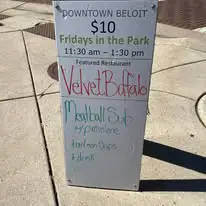 DOWNTOWN BELOIT
$10
Fridays in the Park
11:30 am - 1:30 pm
Featured Restaurant
Velvet Buffalo
Meatball Sub
w/ provolone
& drink